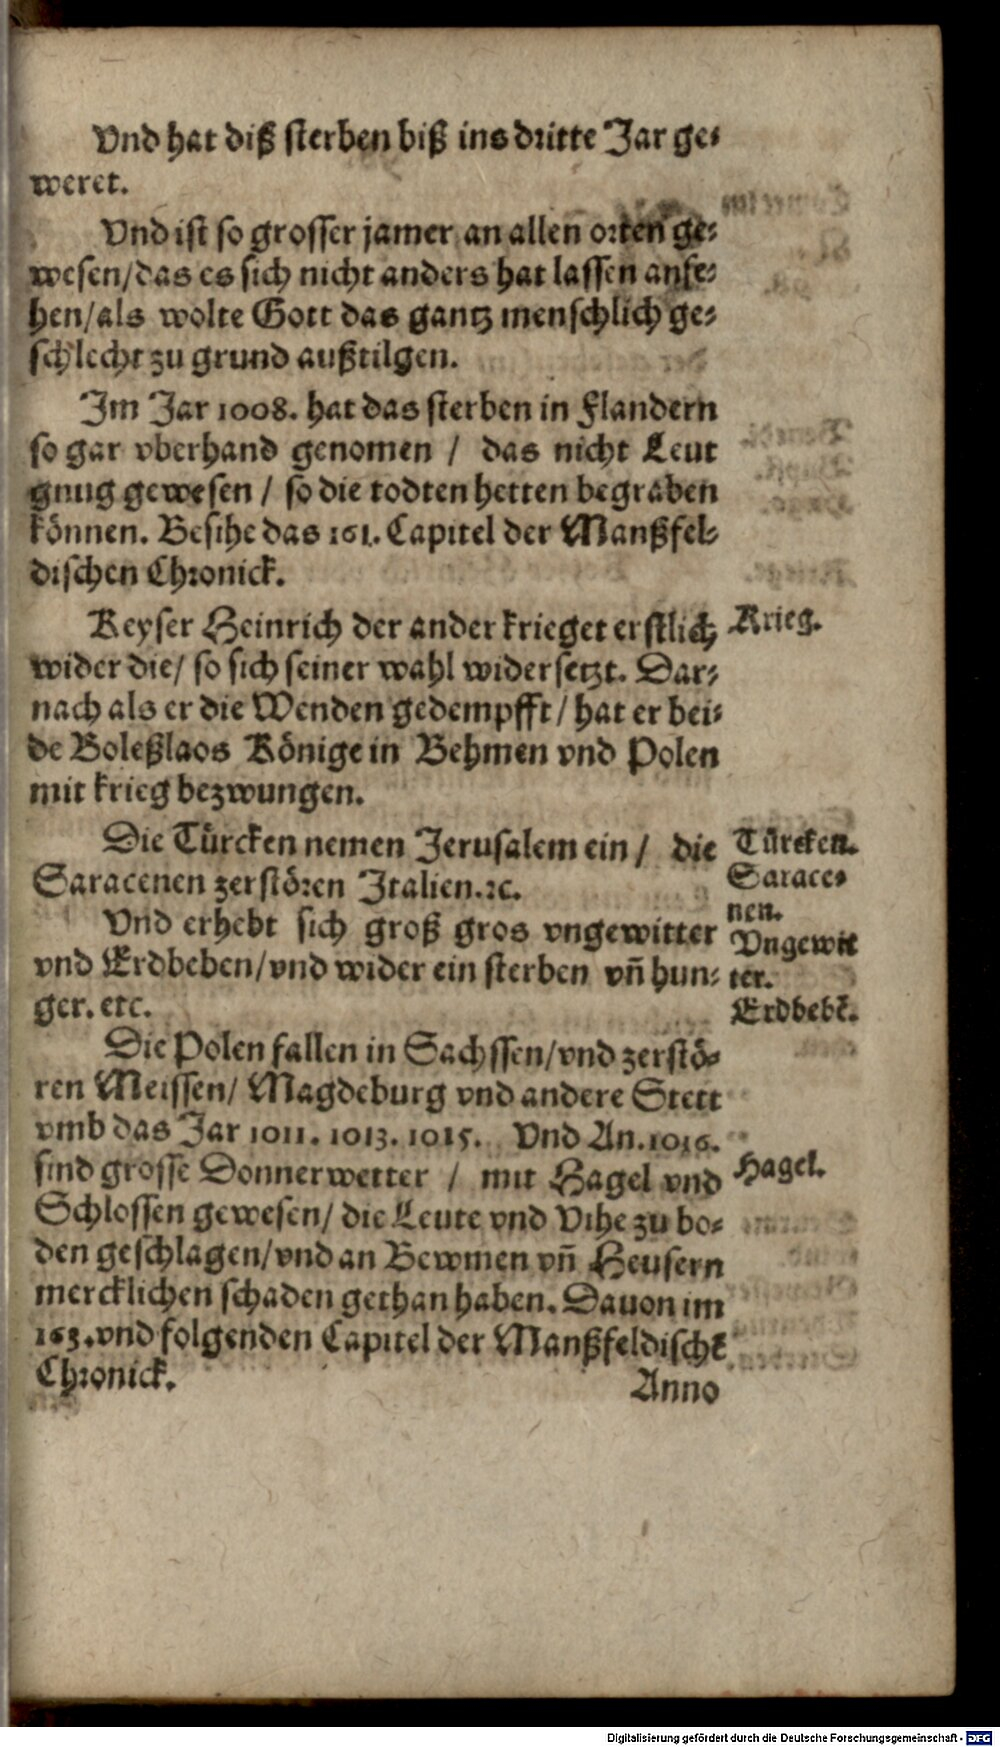 Vnd hat diß sterben biß ins dritte Jar ge⸗
weret.
Vnd ist so grosser jamer an allen orten ge⸗
wesen/das es sich nicht anders hat lassen anse⸗
hen/als wolte Gott das gantz menschlich ge⸗
schlecht zu grund außtilgen.
Im Jar 1008. hat das sterben in Flandern
so gar vberhand genomen / das nicht Leut
gnug gewesen / so die todten hetten begraben
können. Besihe das 161. Capitel der Manßfel⸗
dischen Chronick.
Keyser Heinrich der ander krieget erstlich
Krieg.
wider die/ so sich seiner wahl widersetzt. Dar⸗
nach als er die Wenden gedempfft/ hat er bei⸗
de Boleßlaos Könige in Behmen vnd Polen
mit krieg bezwungen.
Die Türcken nemen Jerusalem ein / die
Türcken.
Saracenen zerstören Italien.ꝛc.
Sarace⸗
nen.
Vnd erhebt sich groß gros vngewitter
Vngewit
vnd Erdbeben/vnd wider ein sterben vñ hun⸗
ter.
ger. etc.
Erdbebē.
Die Polen fallen in Sachssen/vnd zerstö⸗
ren Meissen/ Magdeburg vnd andere Stett
vmb das Jar 1011. 1013. 1015. Vnd An.1016.
sind grosse Donnerwetter / mit Hagel vnd
Hagel.
Schlossen gewesen/ die Leute vnd Vihe zu bo⸗
den geschlagen/vnd an Bewmen vñ Heusern
mercklichen schaden gethan haben. Dauon im
163.vnd folgenden Capitel der Manßfeldischē
Chronick.
Anno
Digitalisierung gefördert durch die Deutsche Forschungsgemeinschaft - DFG